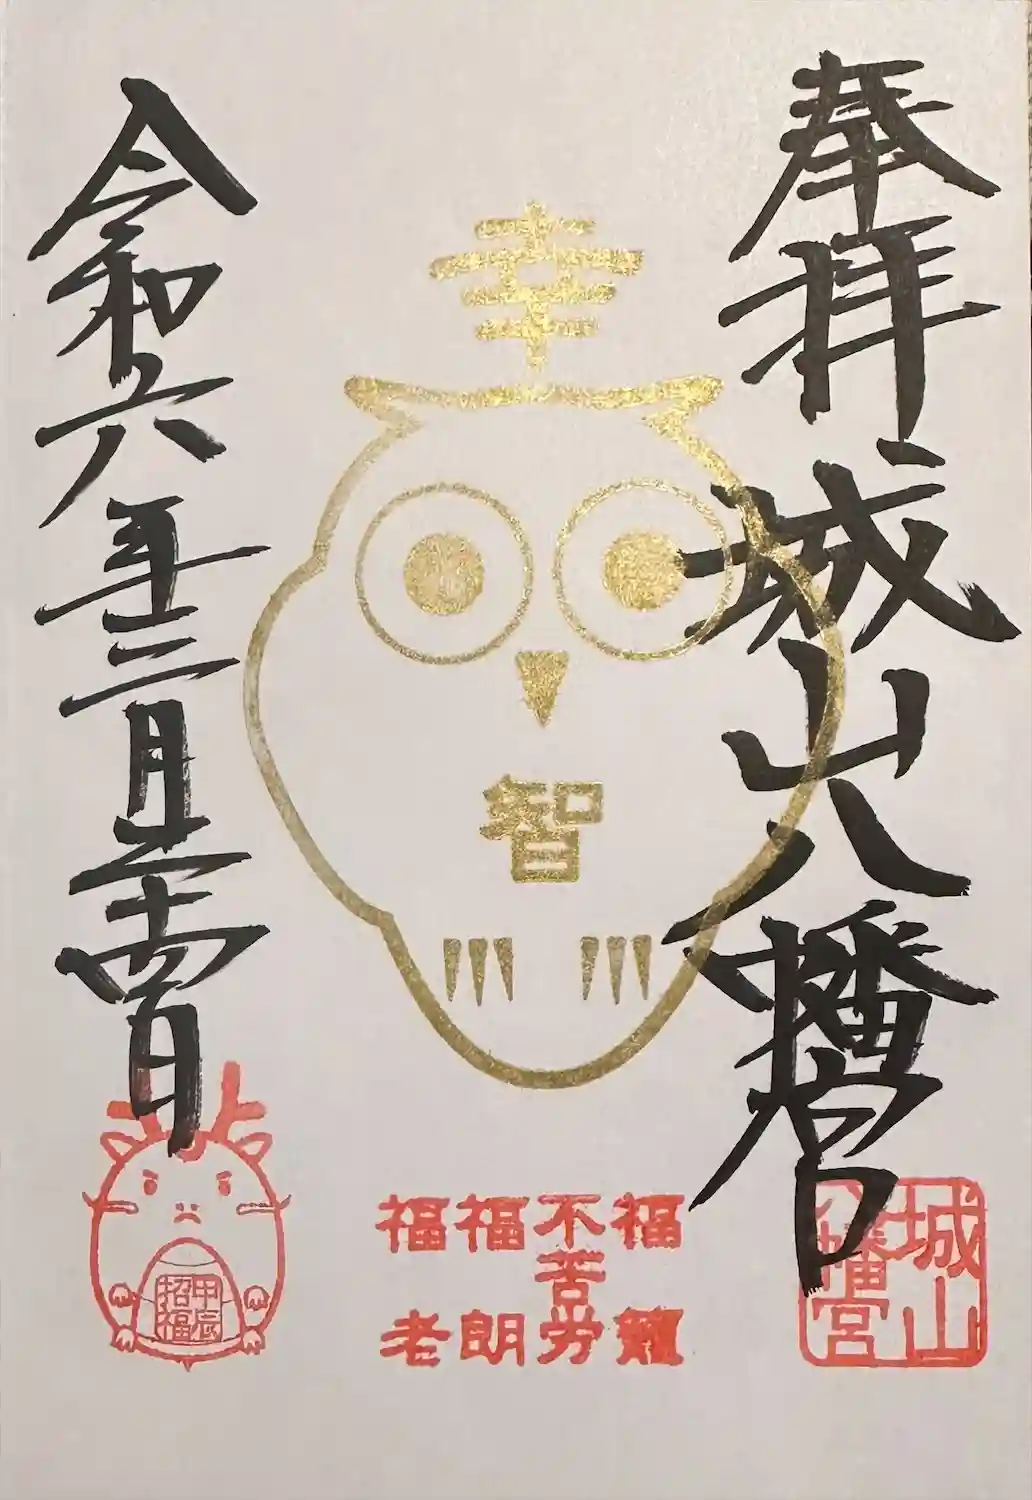 奉拝 城山八幡宮
幸
智
福籠
不苦労
福朗
福老
令和六年三月二十四日
城山
八幡宮
甲辰
招福